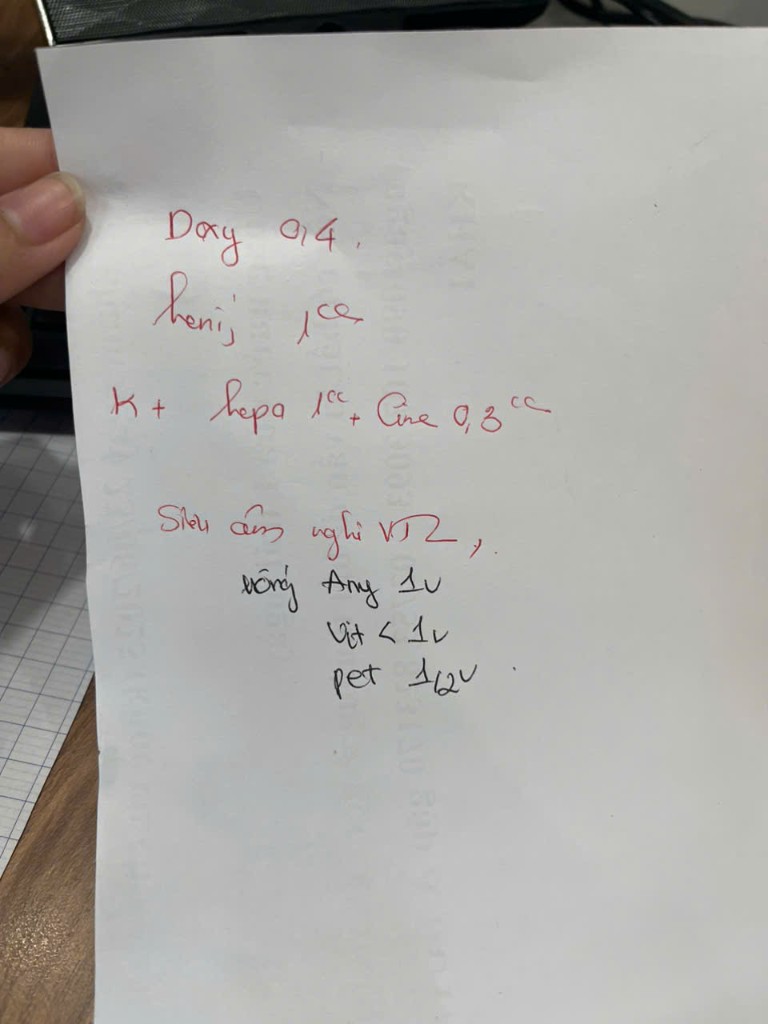 Doxy 0,4.
1cc
K + hepa 1cc + 0,3cc
Siêu âm nghi VTC,
uống Any 1v
Vit C 1v
pet 1/2v